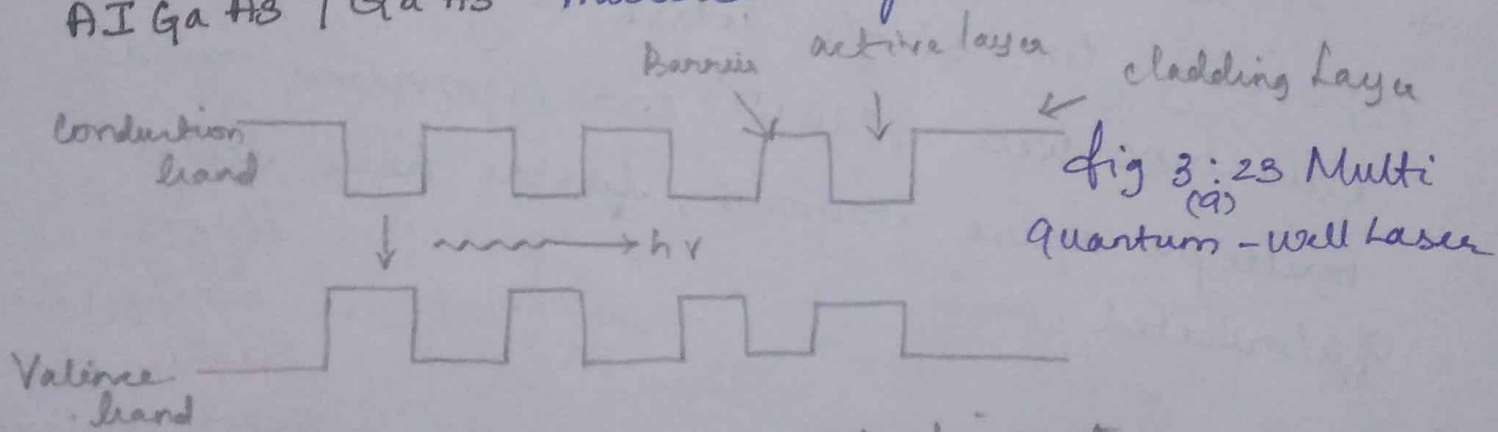 AIGaAs / GaAs
Barrier active layer cladding Layer
Conduction band
fig 3:23 Multi
(a)
quantum - well Laser
hν
Valence band